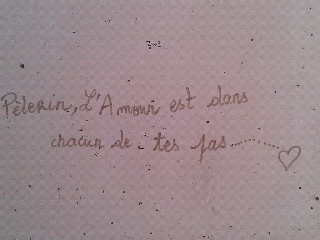 Pèlerin, L'Amour est dans
chacun de tes pas